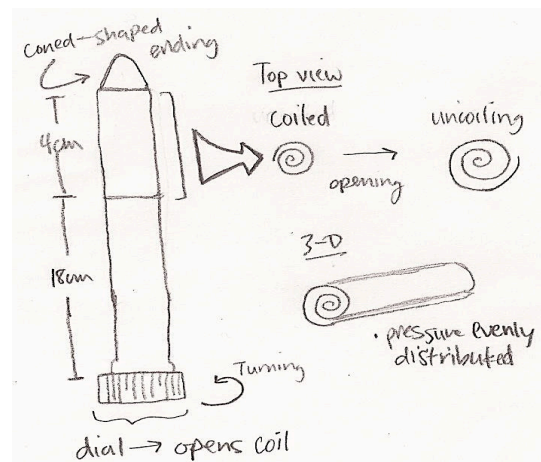 coned-shaped
ending
4cm
18cm
Top view
coiled
uncoiling
opening
3-D
. pressure evenly
distributed
Turning
dial → opens coil